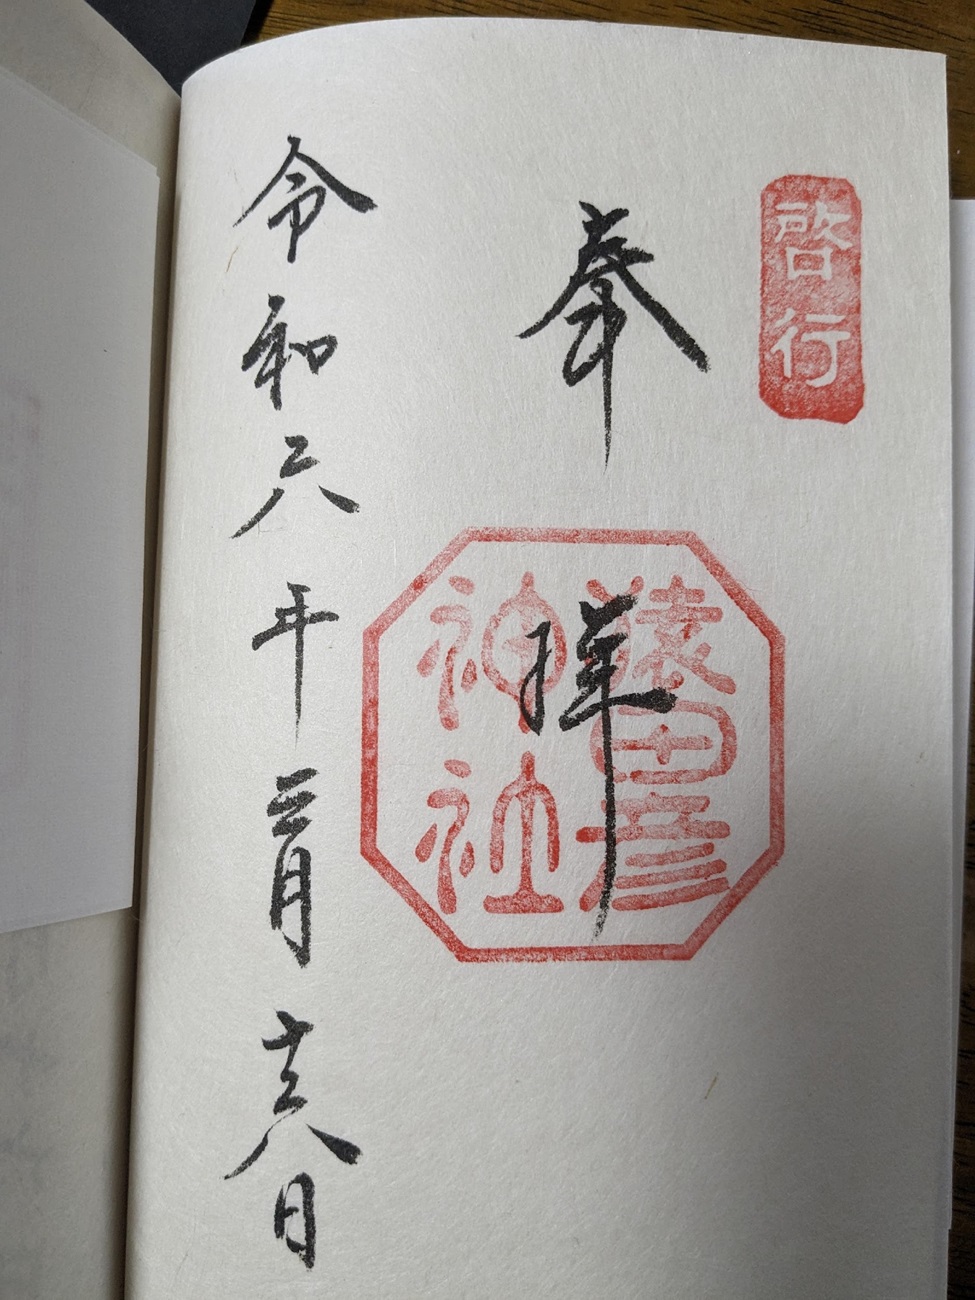 啓行
奉拝
猿田彦
神社
令和六年三月十六日